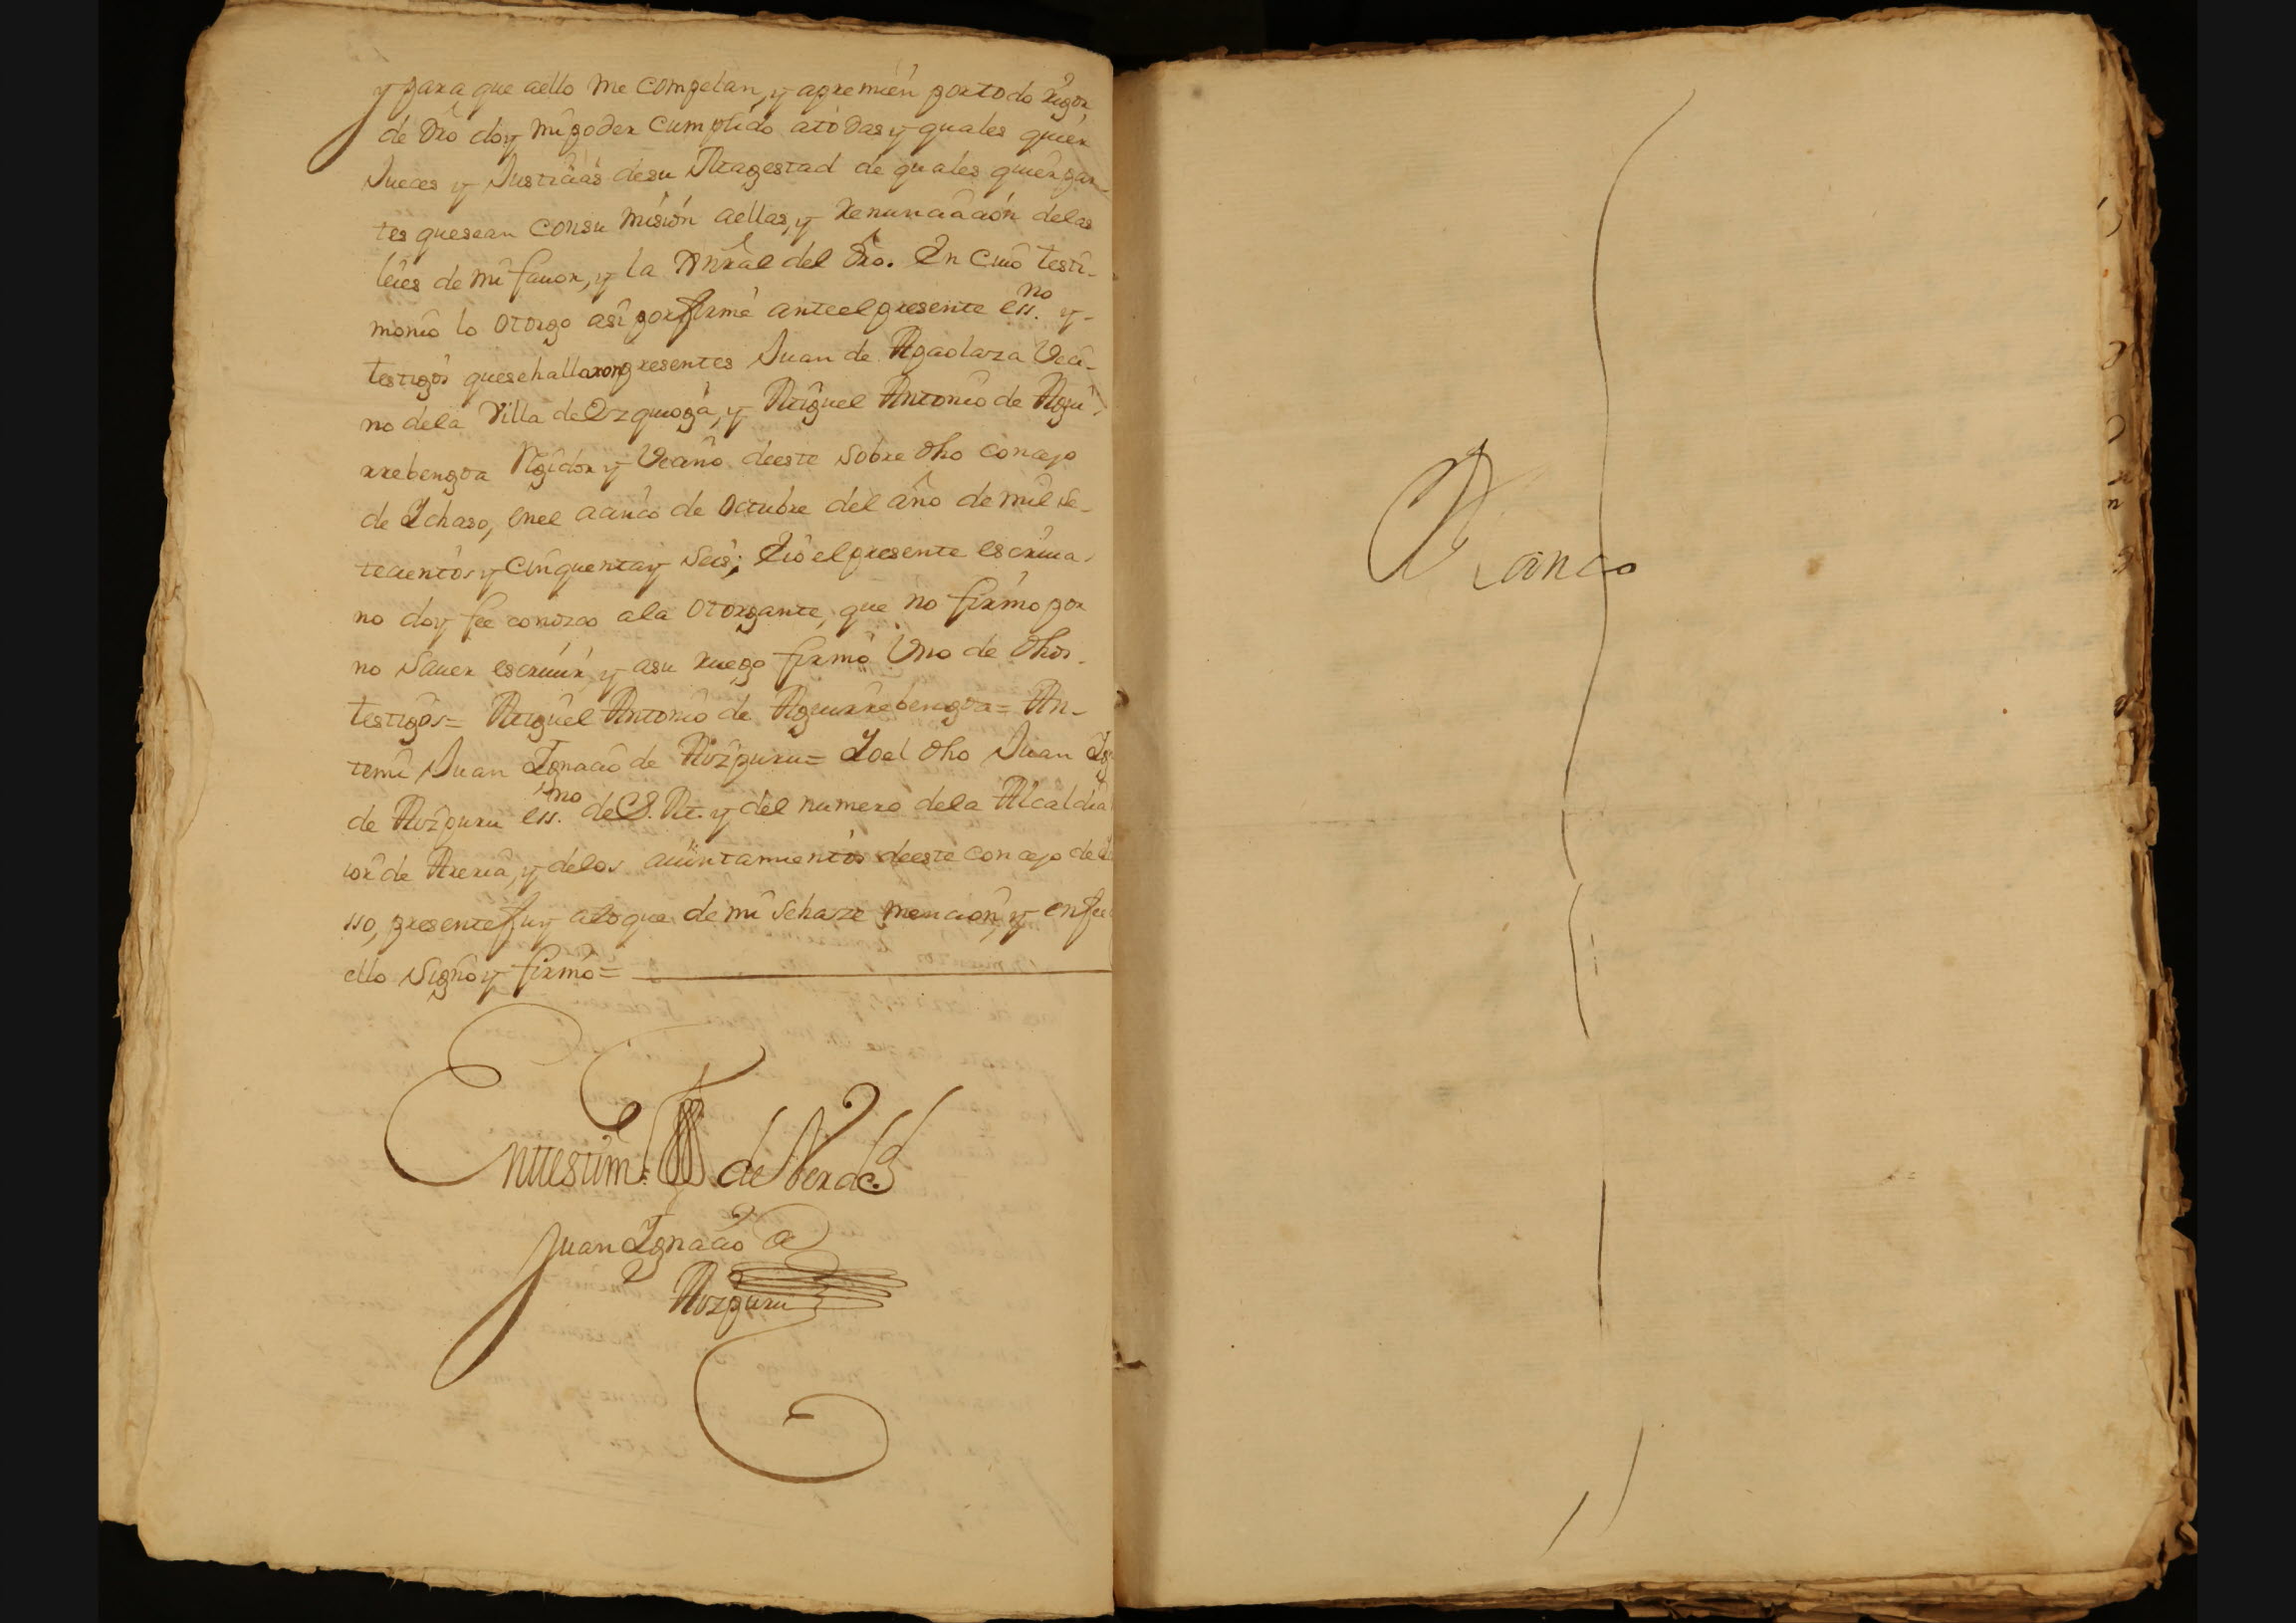 y para que aello me compelan, y apremien por todo rigor
de dro doy mi poder cumplido atodas y quales quier
Jueces y Justicias desu Magestad de quales quier par-
tes quesean consu misión aellas, y renunciación delas
leies de mi fauor, y la Gnral del dro. En cuio testi-
monio lo otorgo asi por firme anteel presente ess.no y-
testigos quesehallaron presentes Juan de Agaolaza Veci-
no dela Villa de Ezquioga, y Miguel Antonio de Agui-
rrebengoa Regidor y Vecino deeste sobre dho concejo
de Ichaso, enel a cinco de Octubre del año de mil se-
tecientos y cinquenta y seis; Eio el presente escriua-
no doy fee conozco ala otorgante, que no firmo por
no sauer escriuir, y asu ruego firmó Vno de dhos
testigos= Miguel Antonio de Aguirrebengoa= An-
temi Juan Ignacio de Aozpuru= Ioel dho Juan Ig
de Aozpuru ess.no de S. M. y del numero dela Alcaldia
ior de Areria, y delos aiuntamientos deeste concejo de
sso, presente fuy alo que de mi sehaze mencion, y enfee
ello signo y firmo=
Entestim.o de Verdad
Juan Ignacio de
Aozpuru
Blanco